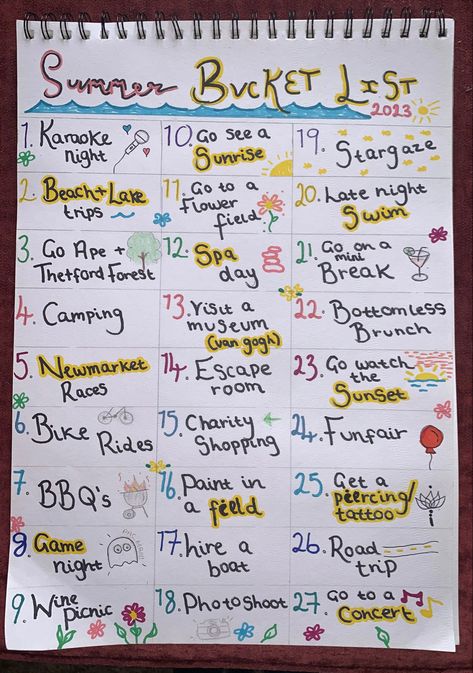 Summer BUCKET LIST
2023
1. Karaoke
night
2. Beach + Lake
trips
3. Go Ape +
Thetford Forest
4. Camping
5. Newmarket
Races
6. Bike
Rides
7. BBQ's
8. Game
night
PAC-MAN!
9. Wine
picnic
10. Go see a
Sunrise
11. Go to a
Flower
field
12. Spa
day
13. Visit a
museum
(van gogh)
14. Escape
room
15. Charity
Shopping
16. Paint in
a field
17. hire a
boat
18. Photoshoot
19. Stargaze
20. Late night
Swim
21. Go on a
mini
Break
22. Bottomless
Brunch
23. Go watch
the
Sunset
24. Funfair
25. Get a
peircing/
tattoo
26. Road
trip
27. Go to a
Concert